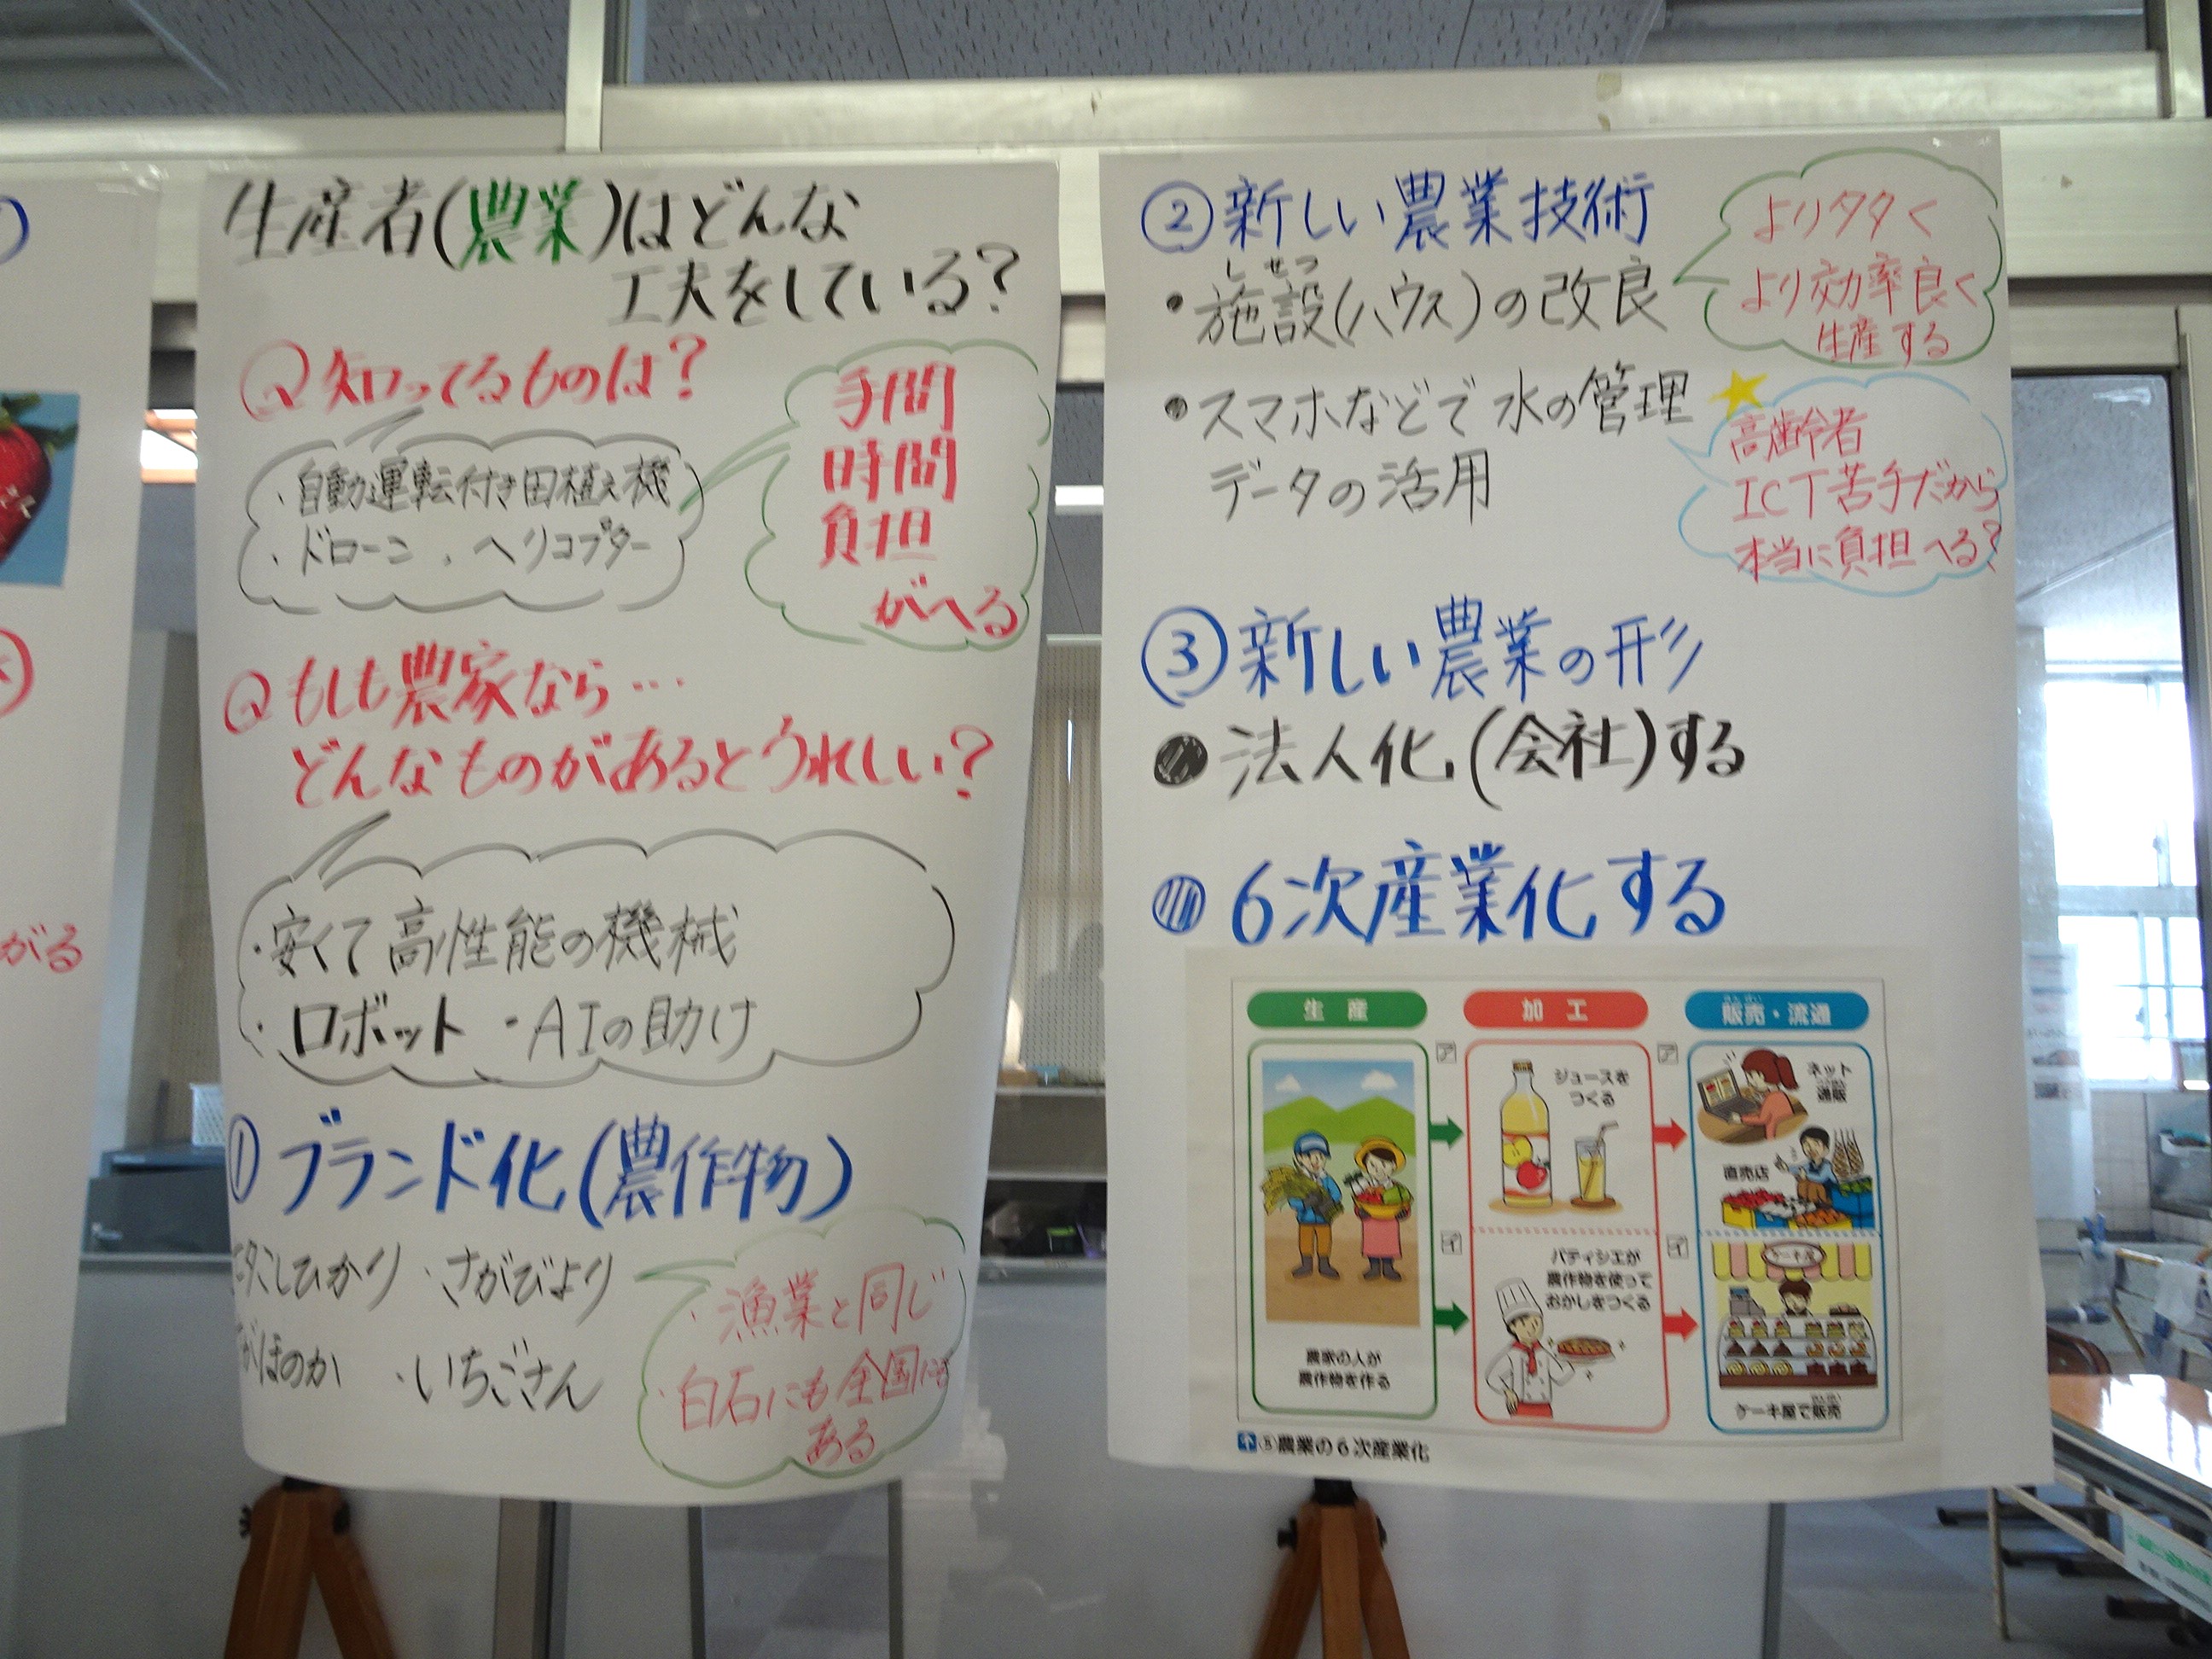 生産者(農業)はどんな
工夫をしている?
Q知ってるものは?
・自動運転付き田植え機
・ドローン ・ヘリコプター
手間
時間
負担
がへる
Qもしも農家なら…
どんなものがあるとうれしい?
・安くて高性能の機械
・ロボット ・AIの助け
①ブランド化(農作物)
こしひかり ・さがびより
がほのか ・いちごさん
・漁業と同じ
・白石にも全国にも
ある
がる
②新しい農業技術
しせつ
・施設(ハウス)の改良
より多く
より効率良く
生産する
・スマホなどで水の管理
データの活用
高齢者
ICT苦手だから
本当に負担へる?
③新しい農業の形
●法人化(会社)する
●6次産業化する
生産
加工
はんばい
販売・流通
ア
ア
ジュースを
つくる
ネット
通販
直売店
イ
イ
パティシエが
農作物を使って
おかしをつくる
ケーキ屋
農家の人が
農作物を作る
ケーキ屋で販売
↑⑤農業の6次産業化